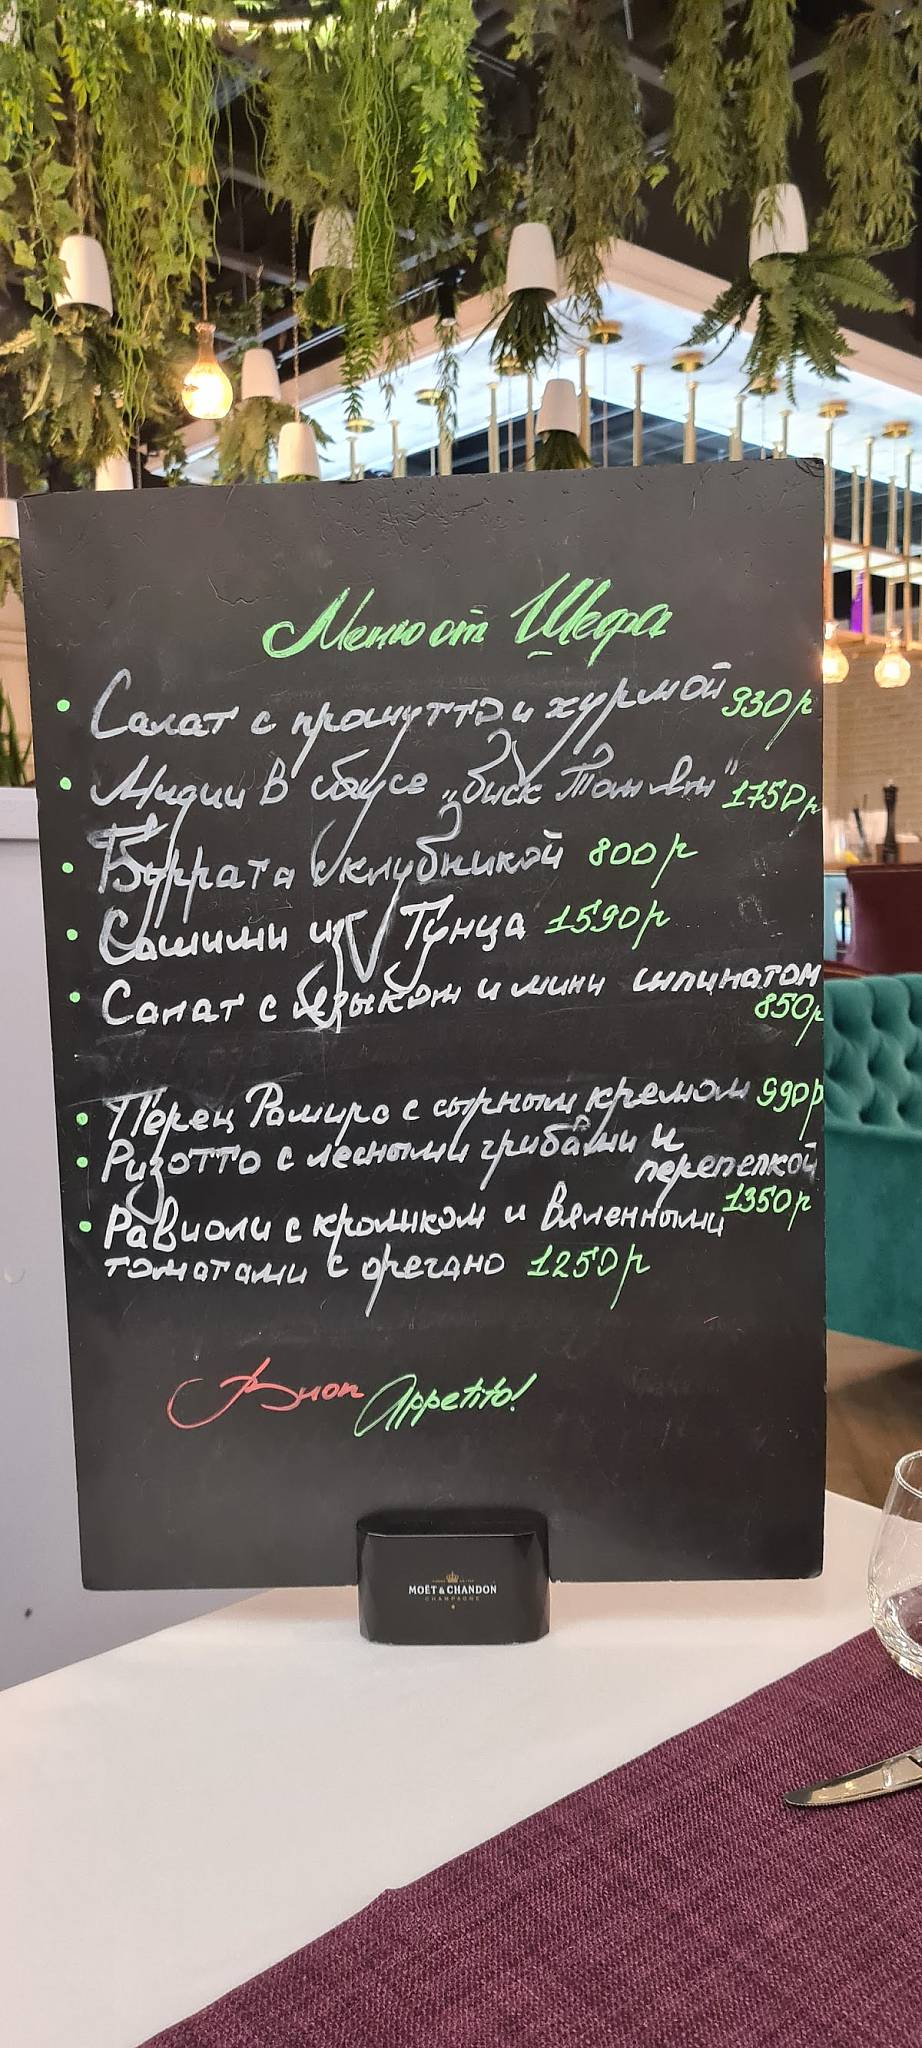 Меню от Шефа
• Салат с прошутто и хурмой 930р
• Мидии в соусе „биск Том Ям" 1750р
• Буррата с клубникой 800р
• Сашими из Тунца 1590р
• Салат с языком и мини шпинатом
850р
• Перец Рамиро с сырным кремом 990р
• Ризотто с лесными грибами и
перепелкой
1350р
• Равиоли с кроликом и вяленными
томатами с орегано 1250р
Buon Appetito!
MOËT & CHANDON
CHAMPAGNE